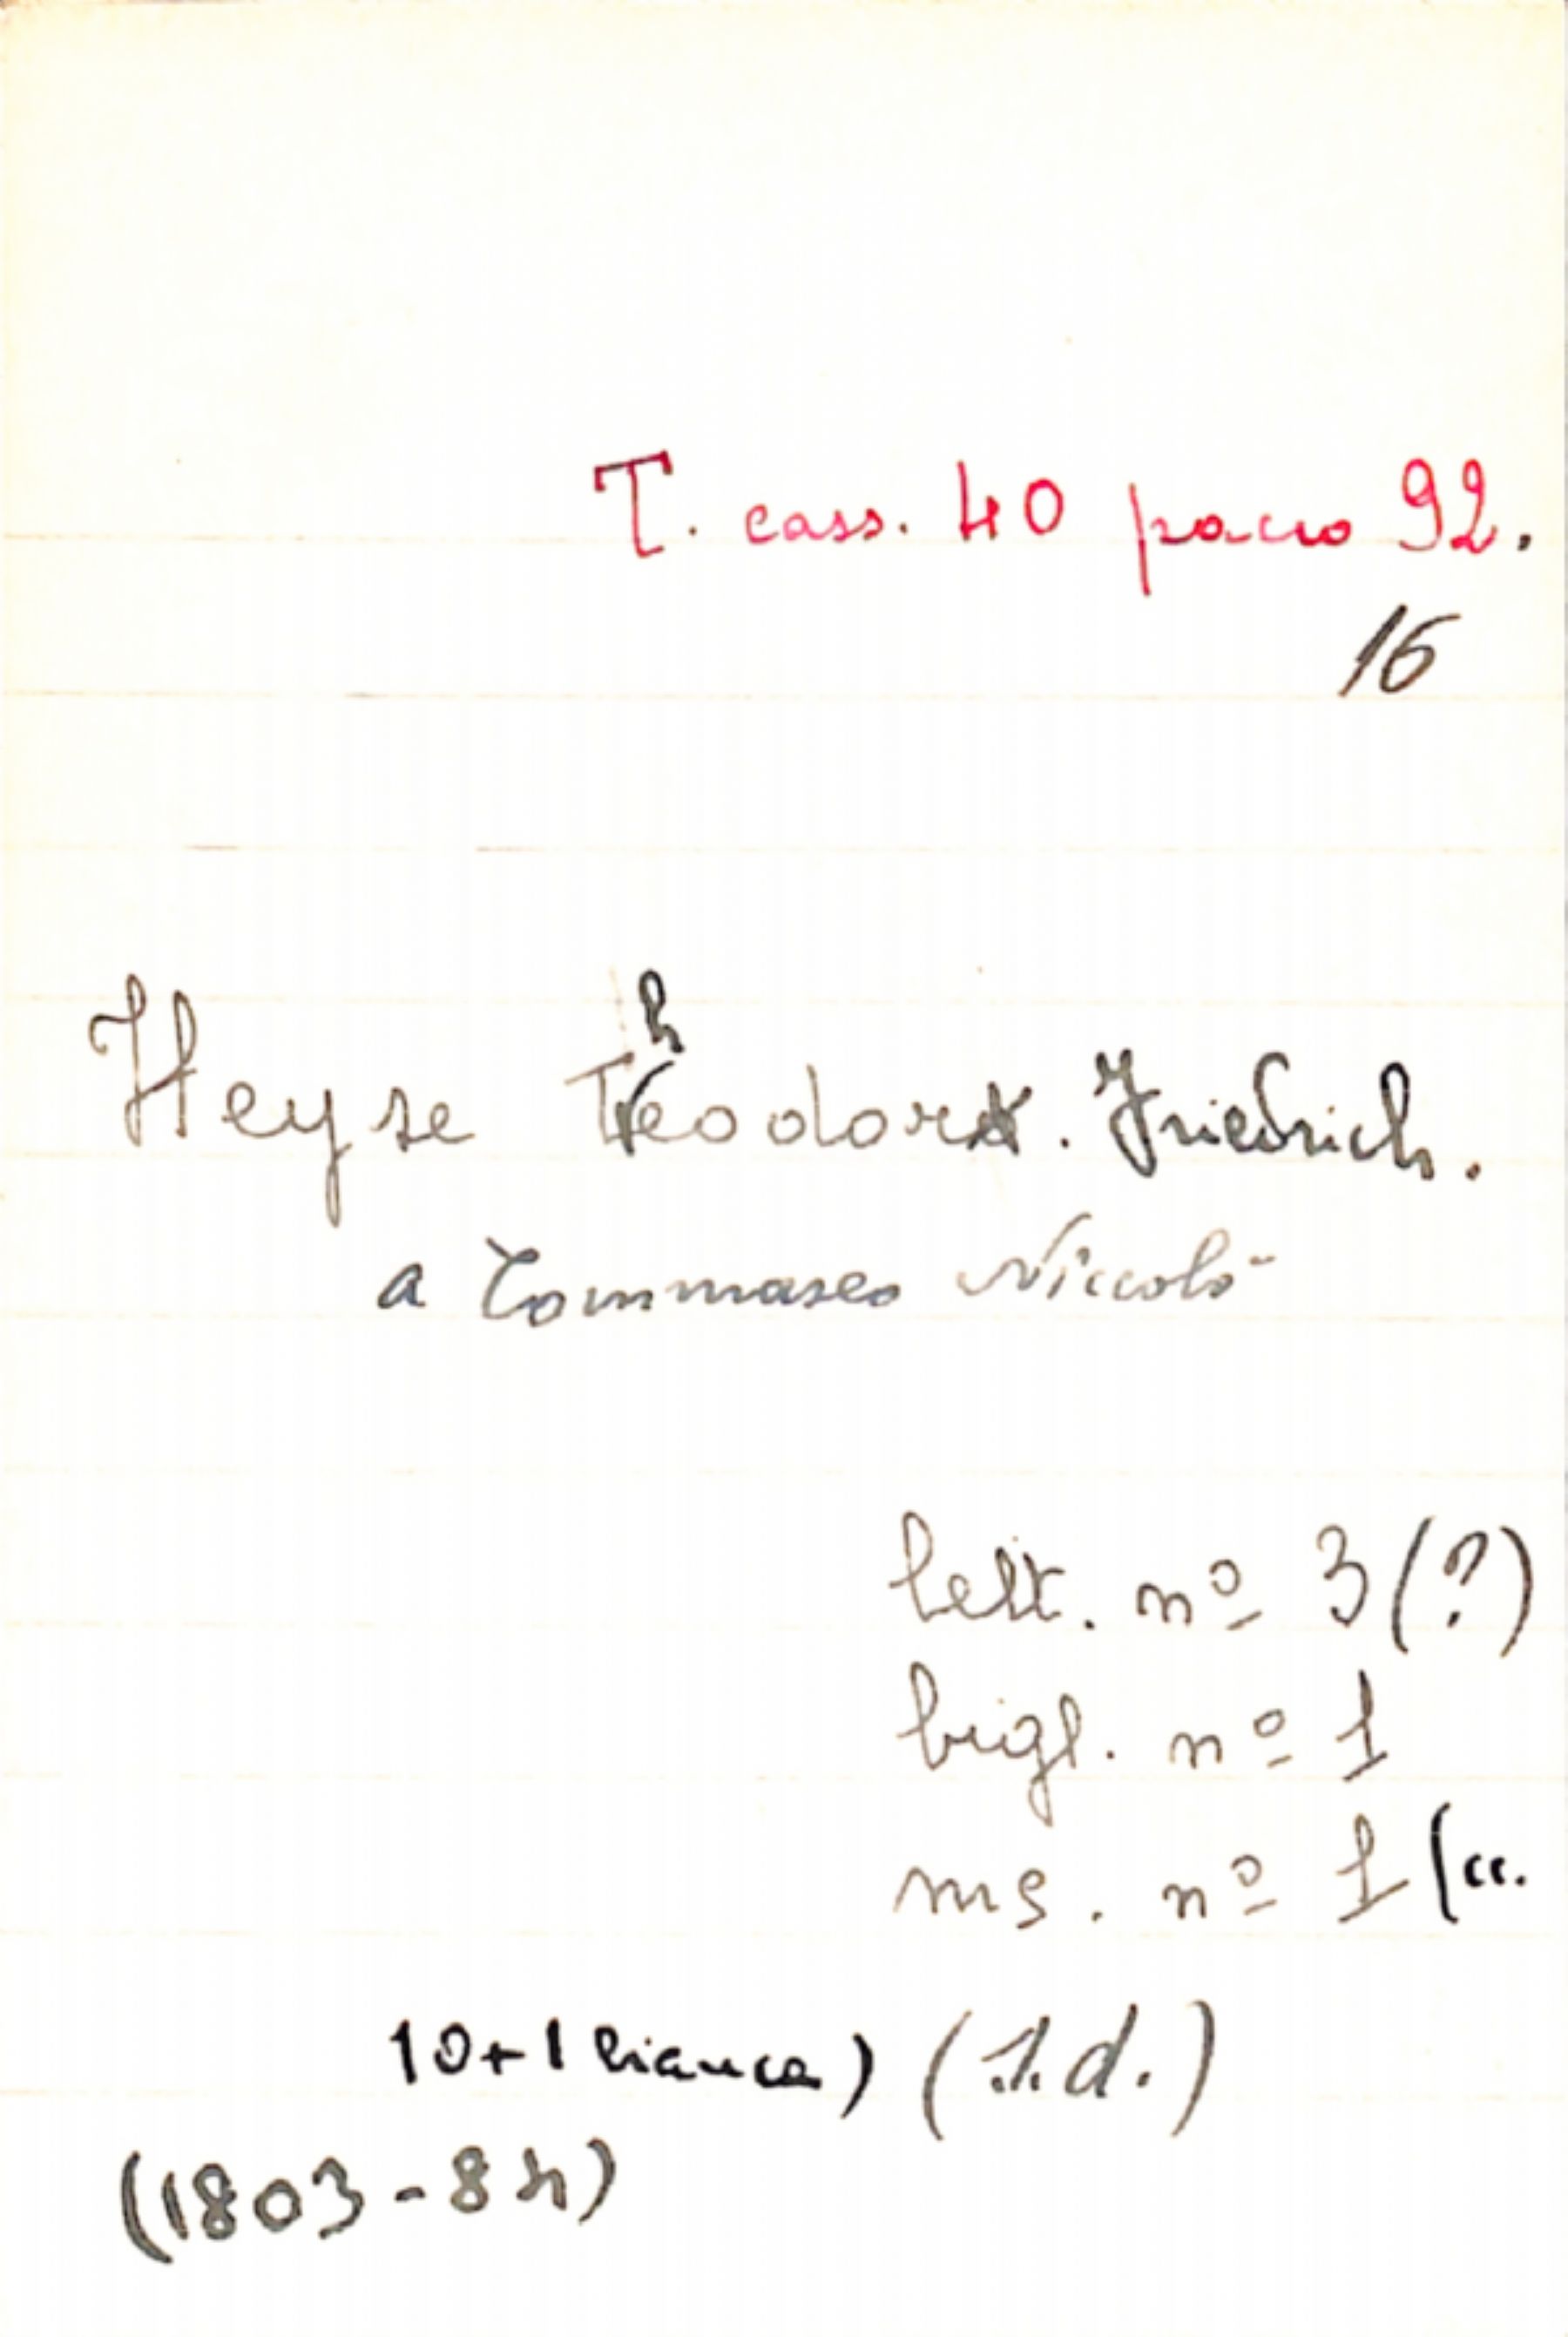 T. cass. 40 pacco 92.
16
Heyse Theodor. Friedrich.
a Tommaseo Niccolò
lett. nº 3 (?)
bigl. nº 1
ms. nº 1 (cc.
10+1 bianca) (s.d.)
(1803-84)